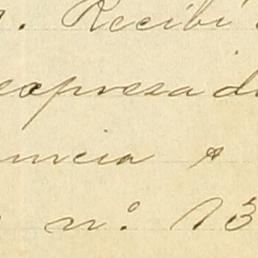 . Recibí
expresa di
uncia
nº. 13